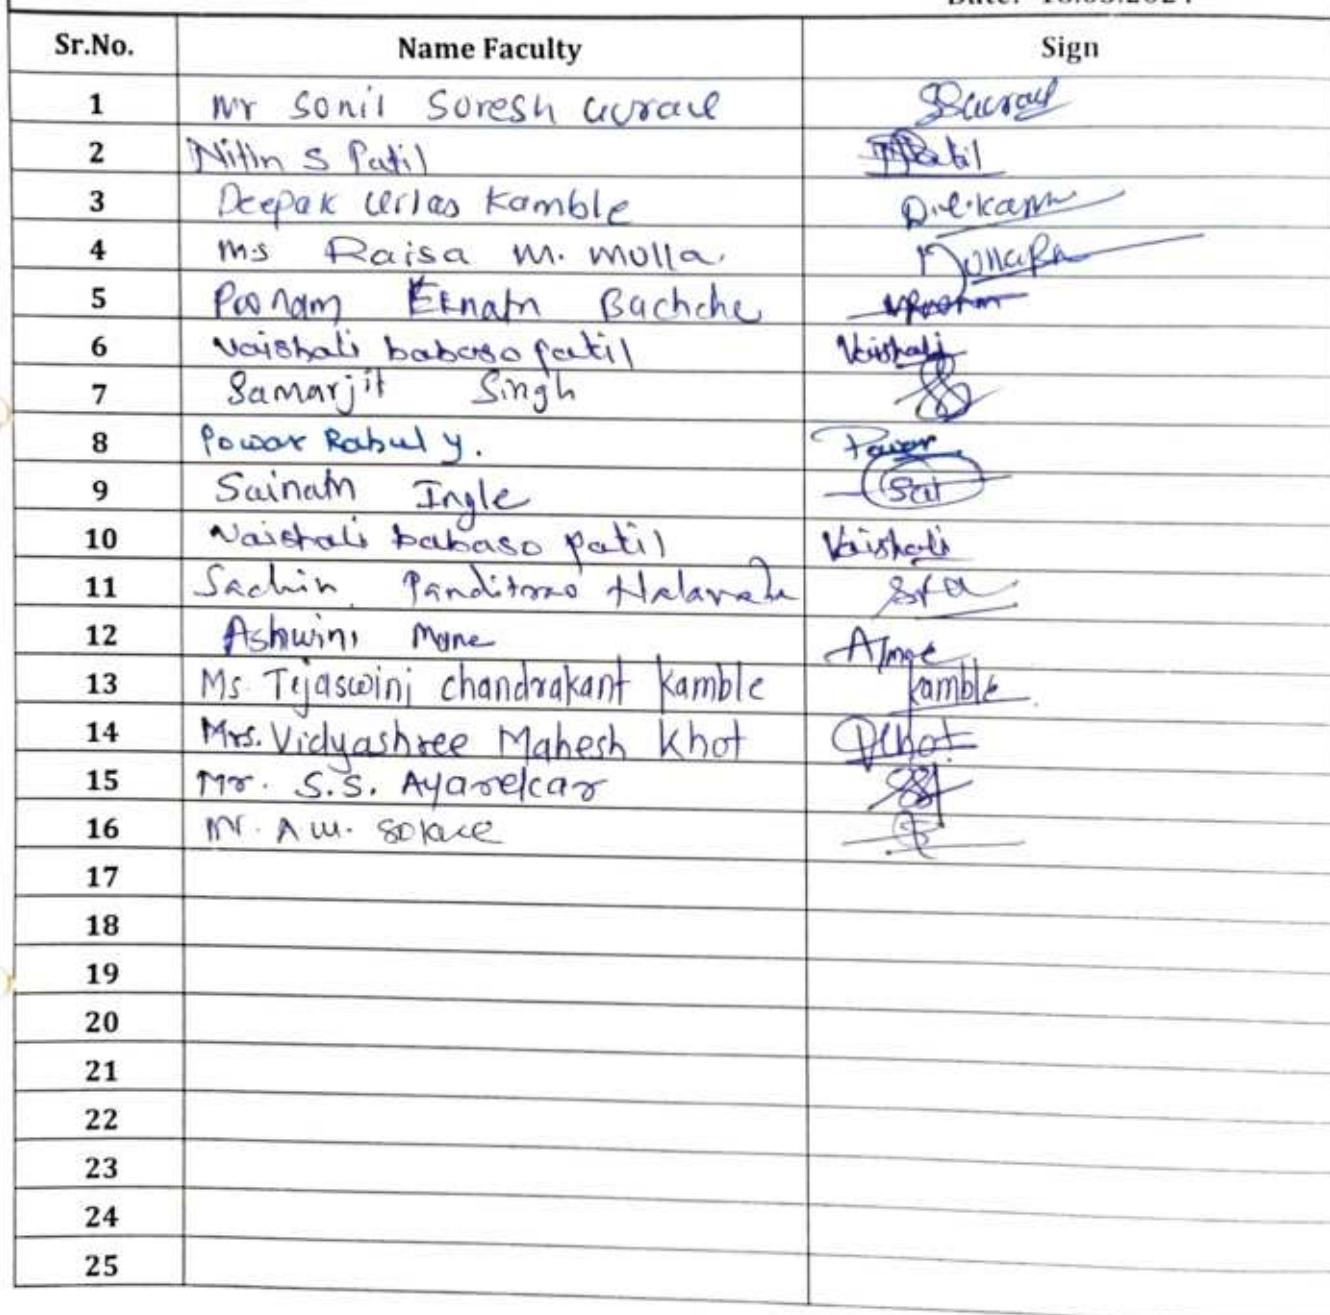 Sr.No. Name Faculty Sign
1 Mr Sonil Soresh
2 Nitin S Patil Patil
3 Deepak Kamble
4 Ms Raisa M. Mulla.
5 Poonam Eknath Bachche
6 Vaishali babaso patil Vaishali
7 Samarjit Singh
8 Powar Rahul Y. Powar
9 Sainath Ingle Sai
10 Vaishali babaso patil Vaishali
11 Sachin Panditrao
12 Ashwini Mane
13 Ms. Tejaswini chandrakant Kamble Kamble
14 Mrs. Vidyashree Mahesh Khot Khot
15 Mr. S.S. Ayarekar
16 Mr. A
17
18
19
20
21
22
23
24
25